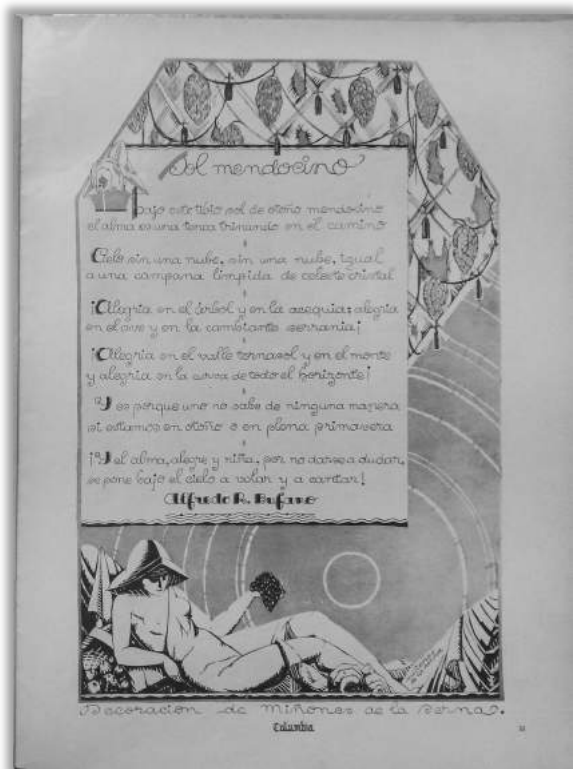 Sol mendocino
Bajo este tibio sol de otoño mendocino
el alma es una terca trinando en el camino
Cielo sin una nube, sin una nube, igual
a una campana límpida de celeste cristal
¡Alegría en el árbol y en la acequia; alegría
en el ave y en la cambiante serranía¡
¡Alegría en el valle tornasol y en el monte
y alegría en la curva de todo el horizonte¡
Y es porque uno no sabe de ninguna manera
si estamos en otoño o en plena primavera
¡Y el alma, alegre y niña, por no darse a dudar,
se pone bajo el cielo a volar y a cantar!
Alfredo R. Bufano
Decoración de Miñones de la Serna.
Columbia